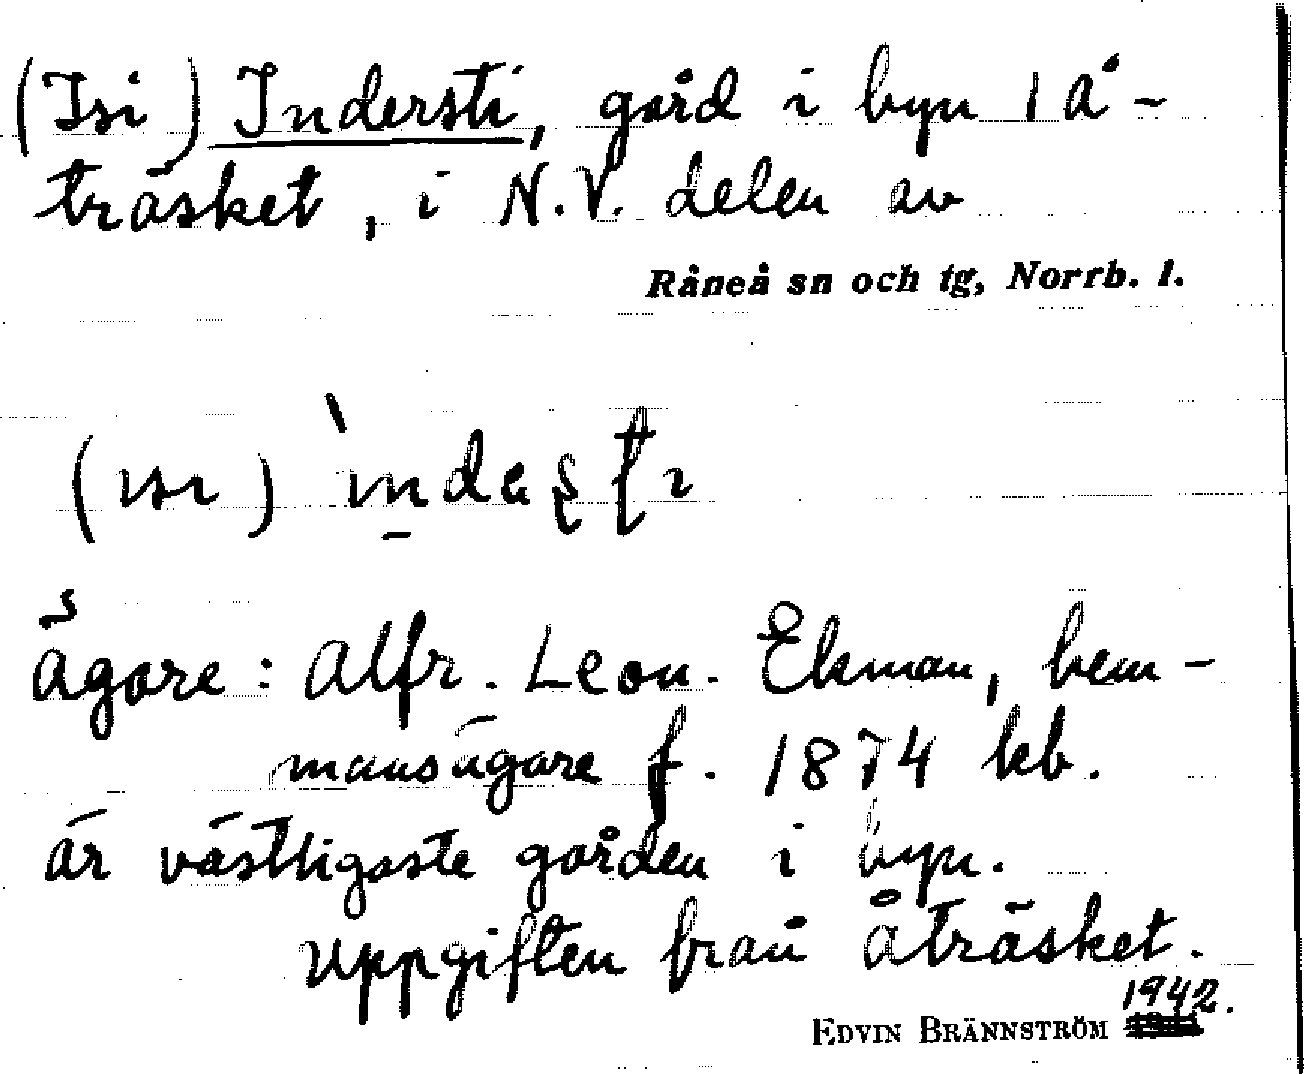 (Isi) Indersti, gård i byn 1 Å-
träsket, i N.V. delen av
Råneå sn och tg, Norrb. l.
(ɪsɪ)
Ägare: Alfr. Leon. Ekman, hem-
mansägare f. 1874 kb.
är västligaste gården i byn.
Uppgiften från Åträsket.
1942.
EDVIN BRÄNNSTRÖM